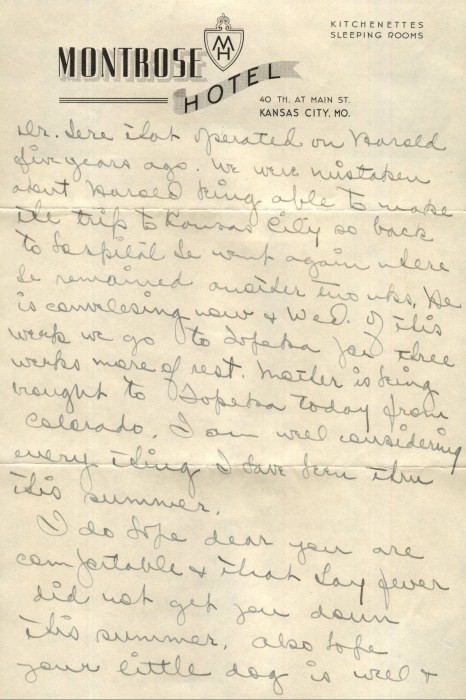 KITCHENETTES
SLEEPING ROOMS
MH
MONTROSE
HOTEL
40 TH. AT MAIN ST.
KANSAS CITY, MO.
Dr. here that operated on Harold
five years ago. We were mistaken
about Harold being able to make
the trip to Kansas City so back
to hospital he went again where
he remained another two wks. He
is convelesing now & Wed. of this
week we go to Topeka for three
weeks more of rest. Mother is being
brought to Topeka today from
Colorado. I am well considering
every thing I have been thru
this summer.
I do hope dear you are
comfortable & that hay fever
did not get you down
this summer. Also hope
your little dog is well &